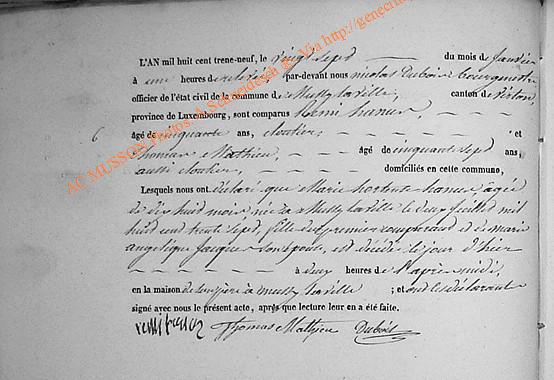 L'AN mil huit cent trene-neuf, le vingt sept du mois de Janvier
à une heures de relevé, par-devant nous nicolas Dubois bourgmestre
officier de l'état civil de la commune de Mussy la ville, canton de Virton,
province de Luxembourg, sont comparus Remi hanus,
6 âgé de cinquante ans, cloutier, et
Thomas Mathieu, âgé de cinquante sept ans,
aussi cloutier, domiciliés en cette commune,
Lesquels nous ont déclaré que Marie hortense hanus, agée
de dix huit mois née à Mussy la ville le deux juillet mil
huit cent trente sept, fille du premier comparant et de marie
angelique Jacques son épouse, est décédée le jour d'hier
à deux heures de l'après midi,
en la maison de son père à mussy la ville ; et ont les déclarant
signé avec nous le présent acte, après que lecture leur en a été faite.
remi hanus Thomas Mathieu Dubois
AC MUSSON Photos A. Schneidesch Via http://genecn